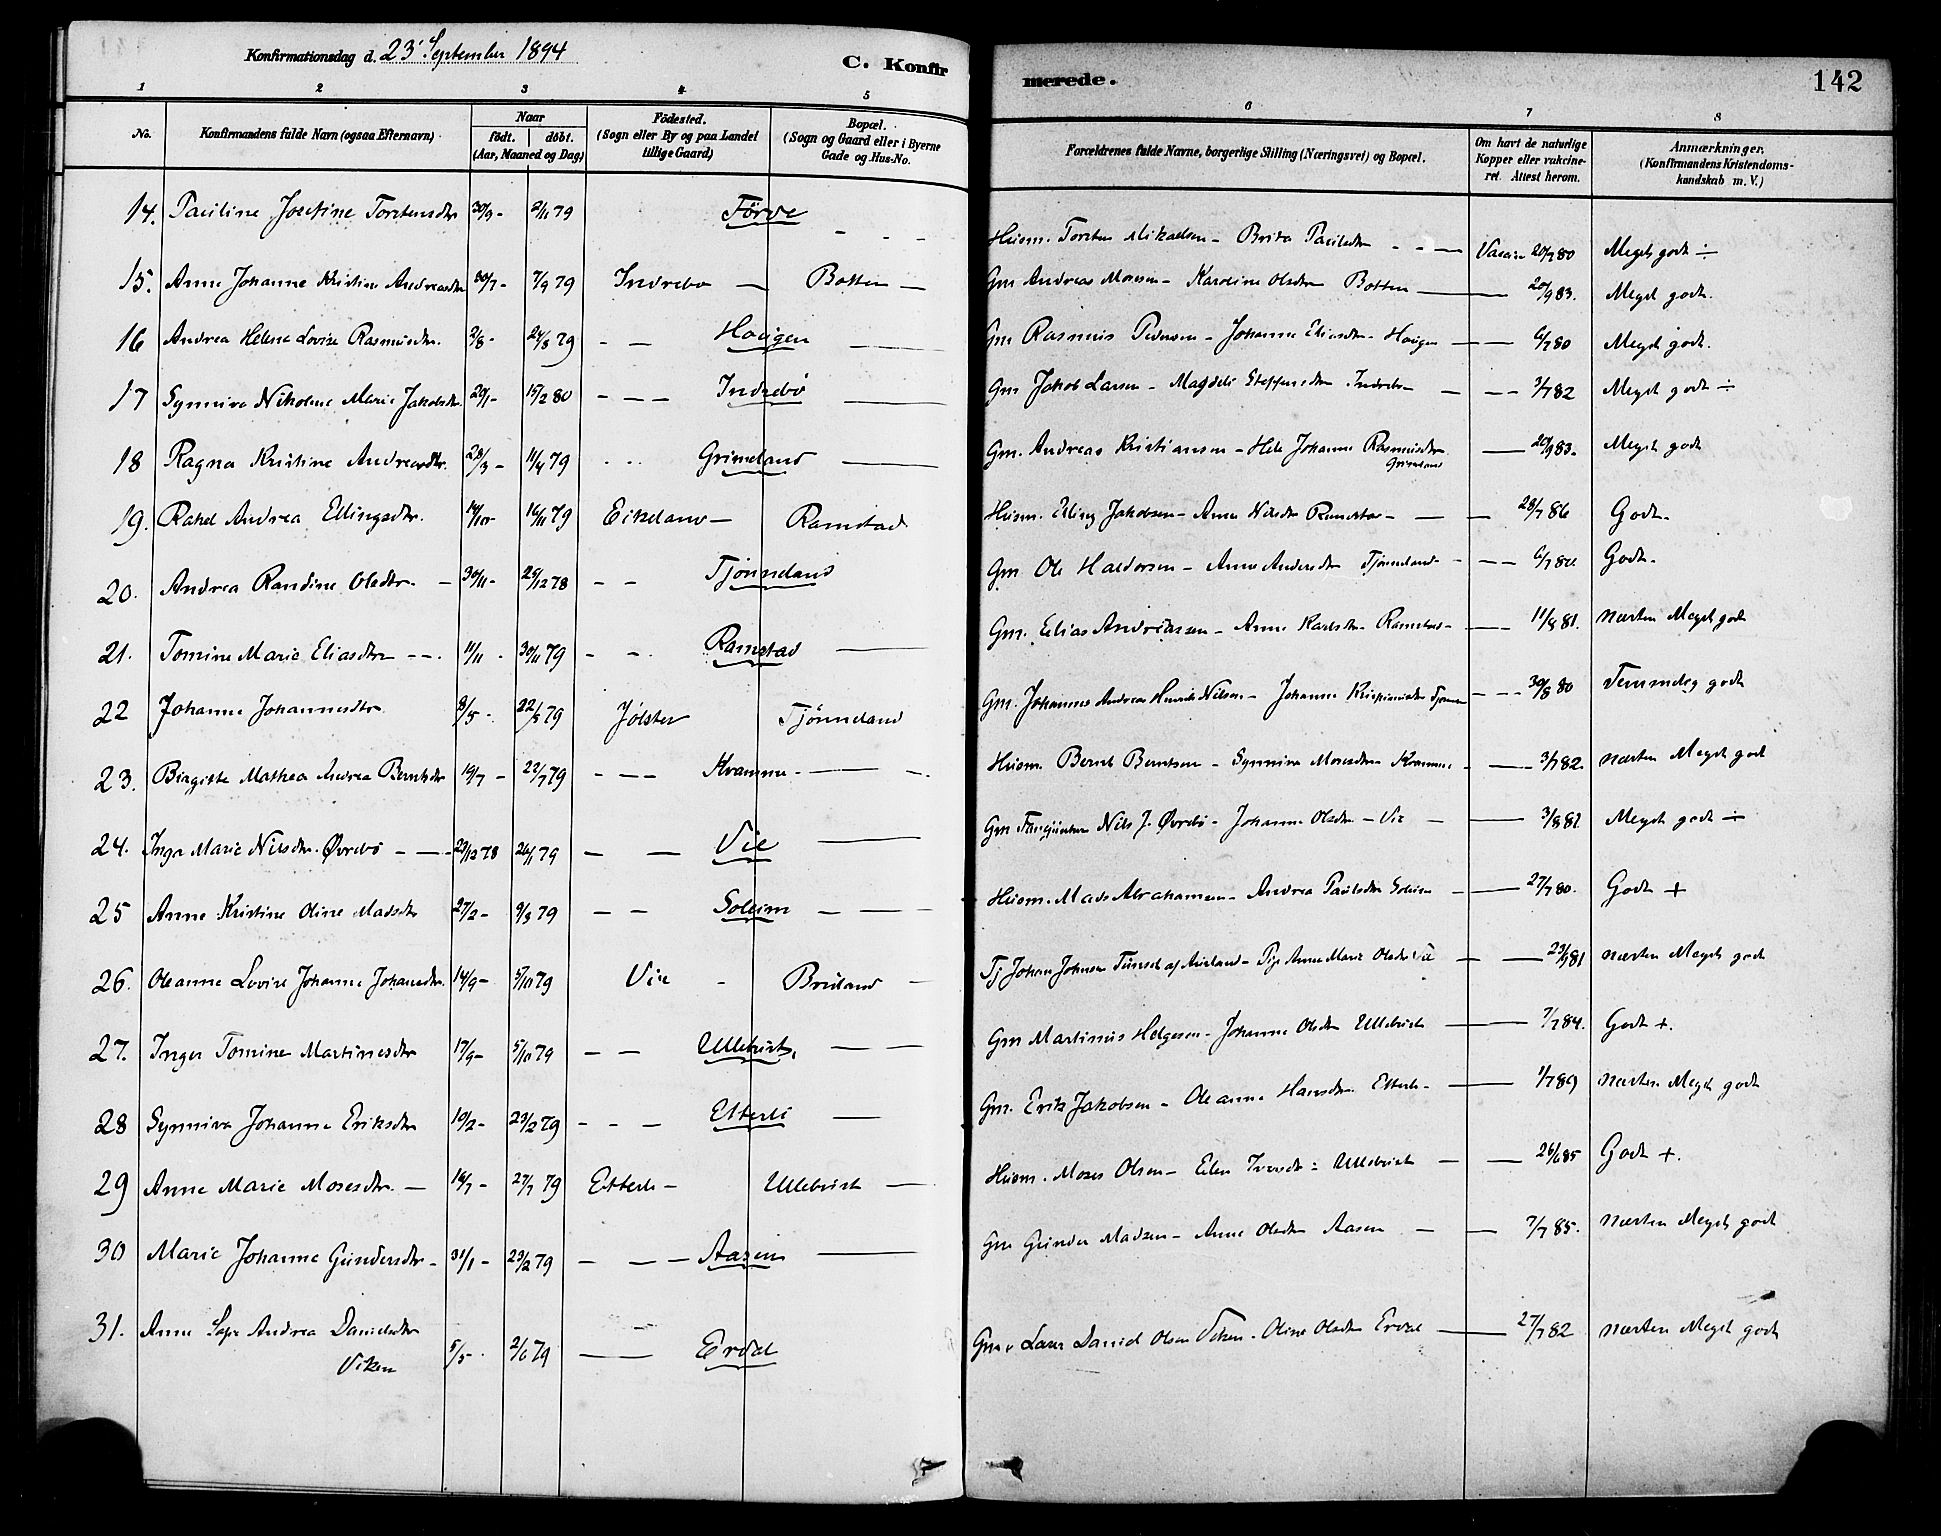 Konfirmationsdag d. 23' September 1894
C. Konfir
merede.
142
1 2 3 4 5 6 7 8
No.
Konfirmandens fulde Navn (ogsaa Efternavn)
Naar
födt. döbt.
(Aar, Maaned og Dag)
Födested.
(Sogn eller By og paa Landet
tillige Gaard)
Bopæl.
(Sogn og Gaard eller i Byerne
Gade og Hus-No.
Forældrenes fulde Navne, borgerlige Stilling (Næringsvei) og Bopæl.
Om havt de naturlige
Kopper eller vakcine-
ret. Attest herom.
Anmærkninger.
(Konfirmandens Kristendoms-
kundskab m. V.)
14. Pauline Josefine Torstensdtr 30/9 - 2/11 79 Förve - - - Husm. Torsten Mikaelsen - Brita Paulsdtr - - — Vaccin 20/7 80 Meget godt ÷
15. Anne Johanne Kristine Andreasdtr 30/7 - 7/9 79 Indrebo — Botten — Gm Andreas Monsen - Karoline Olsdtr Botten — — 20/9 83. Meget godt.
16 Andrea Helene Lovise Rasmusdtr. 2/8 - 24/8 79 - — Haugen — Gm Rasmus Pedersen - Johanne Eliasdtr - Haugen — — 6/7 80 Meget godt.
17 Synniva Nikoline Marie Jakobsdtr. 20/1 - 15/2 80 - — — Indrebö — Gm Jakob Larsen - Magdeli Steffensdtr Indrebo — — 3/7 82 Meget godt ÷
18 Ragna Kristine Andreasdtr. 28/3 - 11/4 79 - - Grimeland — Gm. Andreas Kristiansen - Hele Johanne Rasmusdtr — 20/9 83. Meget godt
Grimeland
19. Rakel Andrea Ellingsdtr. 14/10 - 16/11 79 Eikeland — Ramstad Husm. Elling Jakobsen - Anne Nilsdtr Ramstad - — — 28/7 86 Godt.
20. Andrea Randine Olsdtr. — 30/11 - 26/12 78 - - Tjönneland Gm Ole Haldorsen - Anne Andersdtr Tjönneland - - — 6/7 80. Godt.
21. Tomine Marie Eliasdtr - - . 11/11 - 30/11 79 - - . Ramstad — Gm. Elias Andreassen - Anne Karlsdtr. Ramstad - — 11/8 81. næsten Meget godt
22 Johanne Johannesdtr 8/5 - 22/5 79 Jölster Tjönneland Gm. Johannes Andreas Henrik Nilsen - Johanne Kristiansdtr - — 30/8 80 Temmelig godt
23. Birgitte Mathea Andrea Berntsdtr 19/7 - 22/7 79 - — — Kvamme - — -. Husm. Bernt Berntsen - Synniva Mosesdtr Kvamme - — 3/7 82 næsten Meget godt
24. Inga Marie Nilsdtr. Øvrebö - — - 29/12 78 26/1 79 — — Vie — Gm Nils J. Øvrebö - Johanne Olsdtr - Vie — — 3/8 81 Meget godt ÷
25 Anne Kristine Oline Madsdtr 27/2 - 9/3 79 - — Soleim — — — Husm. Mads Abrahamsen - Andrea Paulsdtr Soleim - — 27/7 80. Godt +
26. Oleanne Lovise Johanne Johansdtr. 14/9 - 5/10 79 Vie - Bruland — Tj Johan Johnsen Tunsel af Aurland - Pige Anne Marie Olsdtr Vie — — 23/9 81 næsten Meget godt
27. Inger Tomine Martinusdtr 17/9 - 5/10 79 - — Ullebust, — — Gm Martinus Helgesen - Johanne Olsdtr Ullebust — 7/7 84. Godt +.
28 Synniva Johanne Eriksdtr 10/2 - 23/2 79 - - — Etterli — Gm. Erik Jakobsen - Oleanne Hansdtr. Etterli - — 1/7 89 næsten Meget godt
29 Anne Marie Mosesdtr. — 18/7 - 27/7 79 Etterli - Ullebust — Husm. Moses Olsen - Eden Iversdtr - Ullebust — — 26/6 85 Godt +.
30 Marie Johanne Gundersdtr - 31/1 - 23/2 79 — — — Aasen — Gm Gunder Madsen - Anne Olsdtr Aasen — — 7/7 85. næsten Meget godt
31. Anne Andrea Danielsdtr 5/5 - 2/6 79 — Erdal Gm Daniel Olsen Viken - Oline Olsdtr Erdal — 27/7 82 næsten Meget godt
Viken